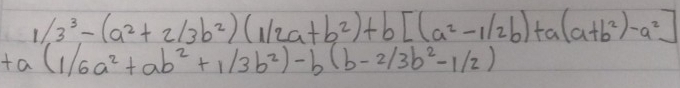 1/3³-(a²+2/3b²)(1/2a+b²)+b[(a²-1/2b)+a(a+b²)-a²]
+a(1/6a²+ab²+1/3b²)-b(b-2/3b²-1/2)